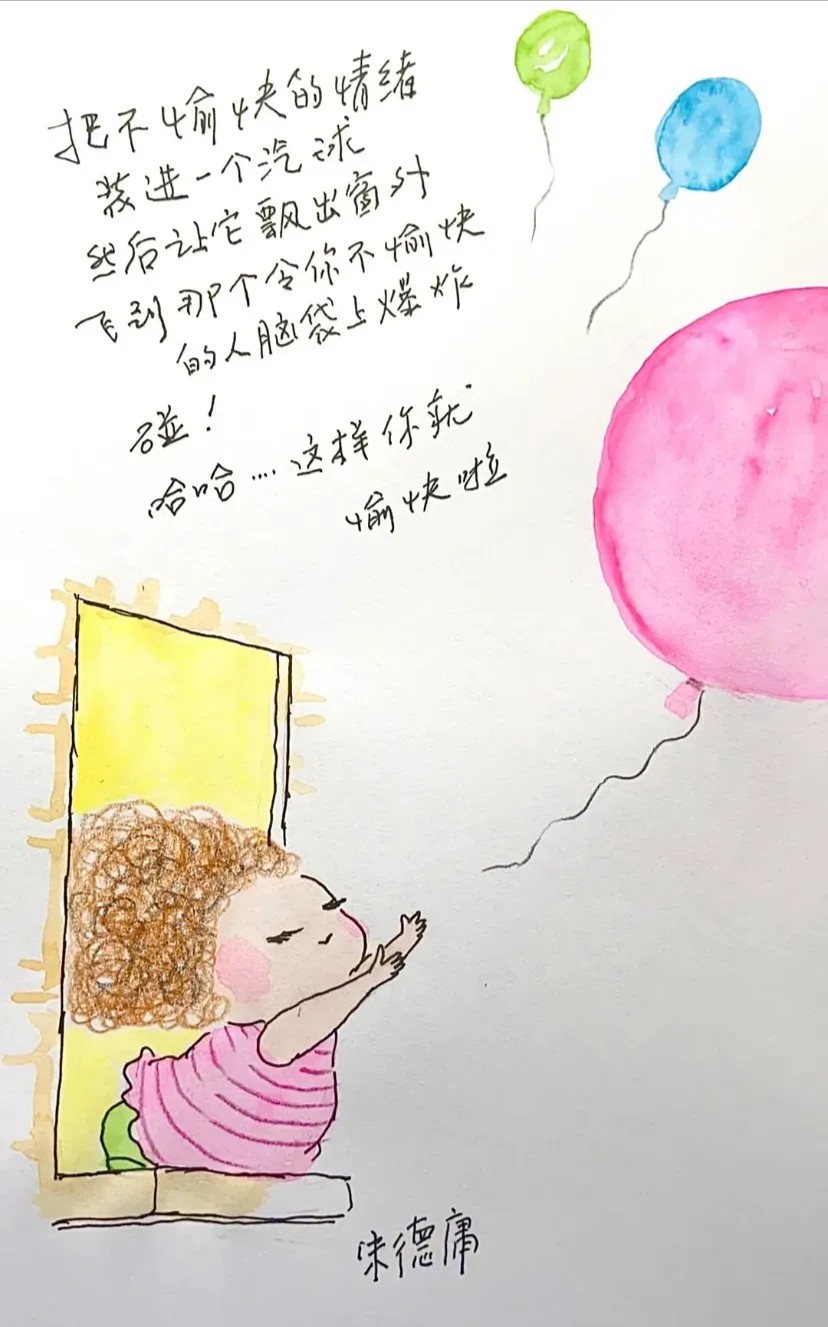 把不愉快的情绪
装进一个汽球
然后让它飘出窗外
飞到那个令你不愉快
的人脑袋上爆炸
碰！
哈哈....这样你就
愉快啦
朱德庸